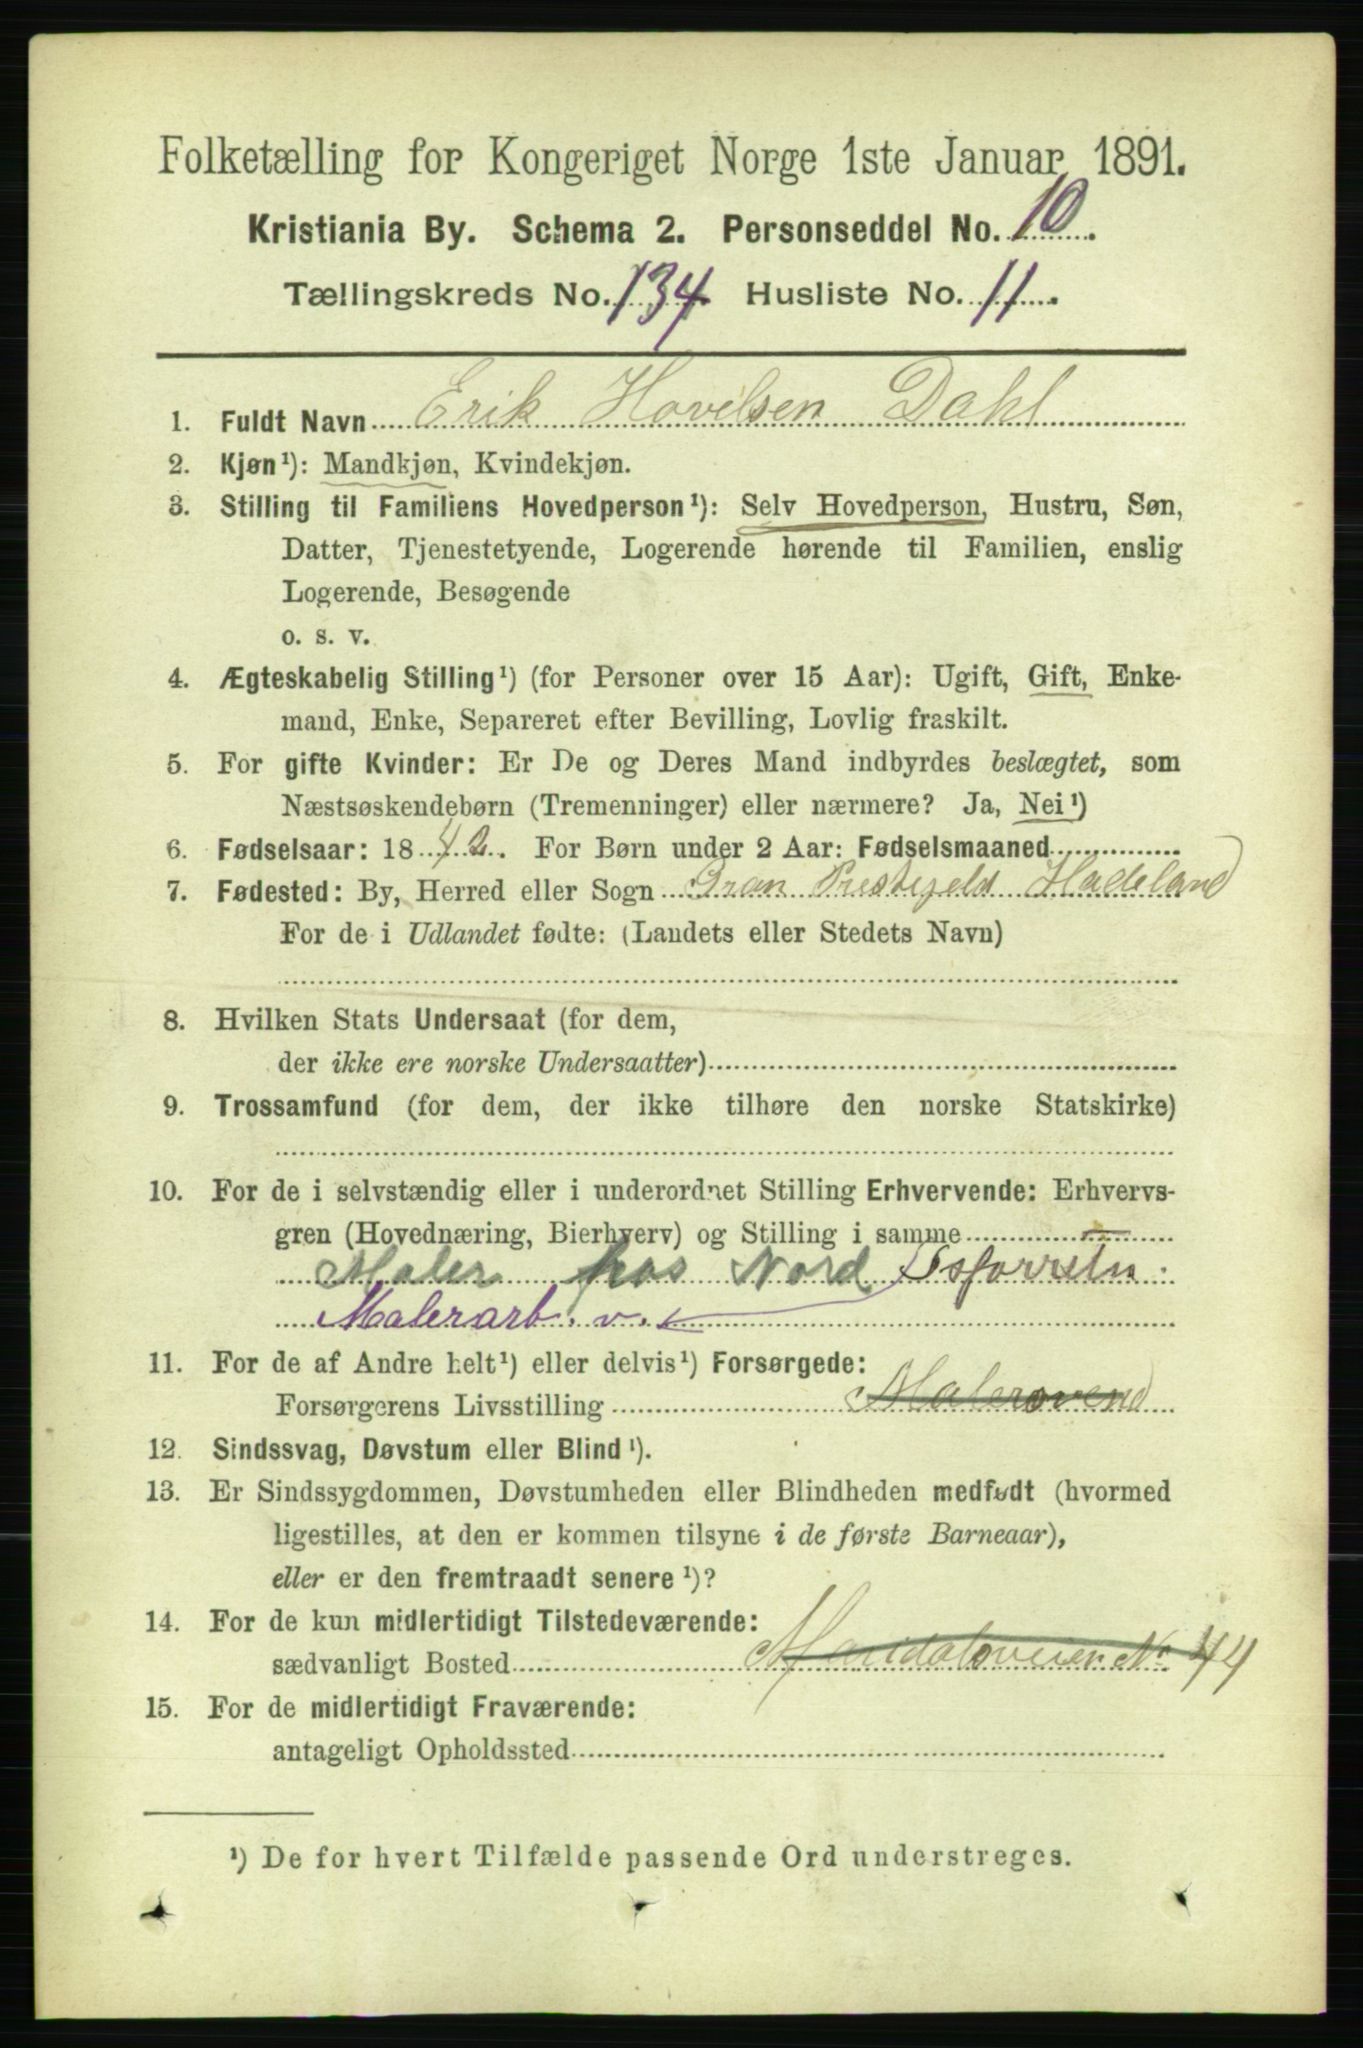 Folketælling for Kongeriget Norge 1ste Januar 1891.
Kristiania By. Schema 2. Personseddel No. 10.
Tællingskreds No. 134. Husliste No. 11.
1. Fuldt Navn Erik Hovelsen Dahl
2. Kjøn¹): Mandkjøn, Kvindekjøn.
3. Stilling til Familiens Hovedperson¹): Selv Hovedperson, Hustru, Søn,
Datter, Tjenestetyende, Logerende hørende til Familien, enslig
Logerende, Besøgende
o. s. v.
4. Ægteskabelig Stilling¹) (for Personer over 15 Aar): Ugift, Gift, Enke-
mand, Enke, Separeret efter Bevilling, Lovlig fraskilt.
5. For gifte Kvinder: Er De og Deres Mand indbyrdes beslægtet, som
Næstsøskendebørn (Tremenninger) eller nærmere? Ja, Nei¹)
6. Fødselsaar: 1842. For Børn under 2 Aar: Fødselsmaaned
7. Fødested: By, Herred eller Sogn Gran Prestegeld Hadeland
For de i Udlandet fødte: (Landets eller Stedets Navn)
8. Hvilken Stats Undersaat (for dem,
der ikke ere norske Undersaatter)
9. Trossamfund (for dem, der ikke tilhøre den norske Statskirke)
10. For de i selvstændig eller i underordnet Stilling Erhvervende: Erhvervs-
gren (Hovednæring, Bierhverv) og Stilling i samme
Maler hos Nord
Malerarb. v.
11. For de af Andre helt¹) eller delvis¹) Forsørgede:
Forsørgerens Livsstilling Malersvend
12. Sindssvag, Døvstum eller Blind¹).
13. Er Sindssygdommen, Døvstumheden eller Blindheden medfødt (hvormed
ligestilles, at den er kommen tilsyne i de første Barneaar),
eller er den fremtraadt senere¹)?
14. For de kun midlertidigt Tilstedeværende:
sædvanligt Bosted Maridalsveien No 44
15. For de midlertidigt Fraværende:
antageligt Opholdssted
¹) De for hvert Tilfælde passende Ord understreges.